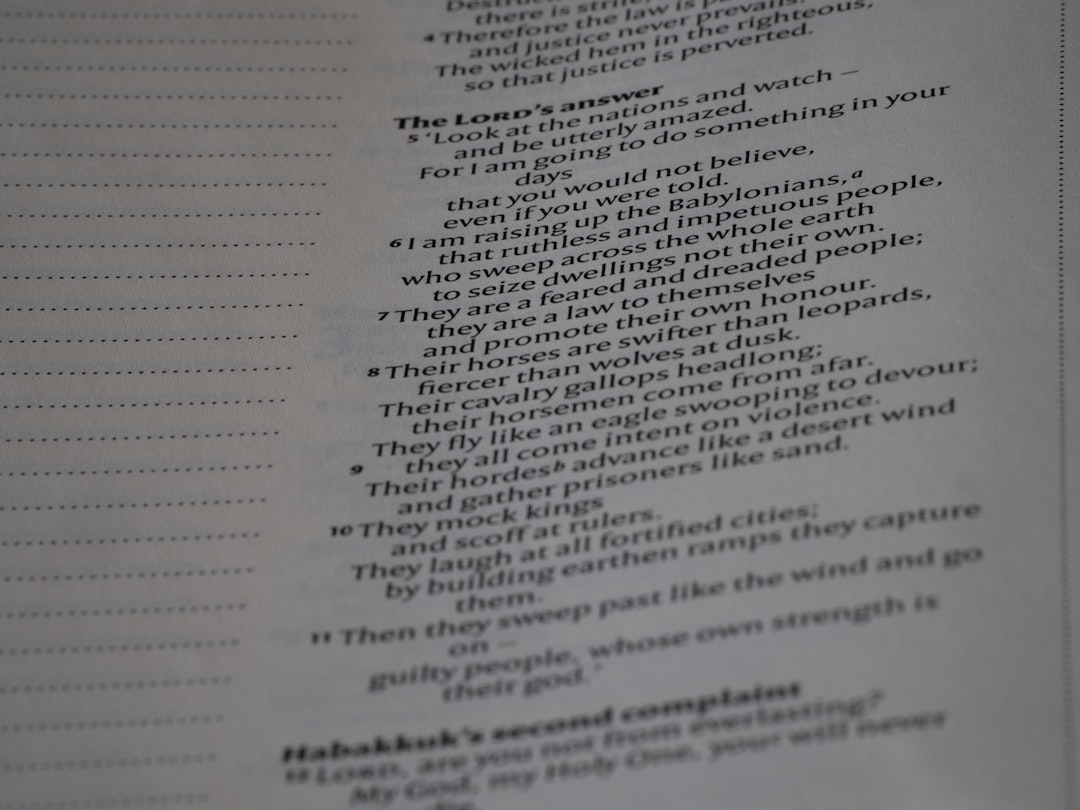 Destruct
there is strife,
4 Therefore the law is p
and justice never prevails.
The wicked hem in the righteous,
so that justice is perverted.
The LORD's answer
5 ‘Look at the nations and watch –
and be utterly amazed.
For I am going to do something in your
days
that you would not believe,
even if you were told.
6 I am raising up the Babylonians,a
that ruthless and impetuous people,
who sweep across the whole earth
to seize dwellings not their own.
7 They are a feared and dreaded people;
they are a law to themselves
and promote their own honour.
8 Their horses are swifter than leopards,
fiercer than wolves at dusk.
Their cavalry gallops headlong;
their horsemen come from afar.
They fly like an eagle swooping to devour;
9 they all come intent on violence.
Their hordesb advance like a desert wind
and gather prisoners like sand.
10 They mock kings
and scoff at rulers.
They laugh at all fortified cities;
by building earthen ramps they capture
them.
11 Then they sweep past like the wind and go
on –
guilty people, whose own strength is
their god.’
Habakkuk's second complaint
12 LORD, are you not from everlasting?
My God, my Holy One, youc will never
die.